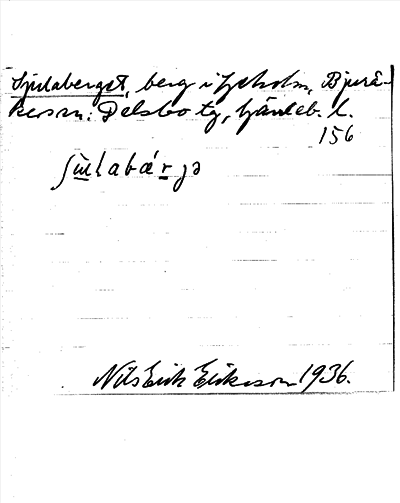 Sjulaberget, berg i Sjöholm, Bjurå-
kers sn. Delsbo tg, Gävleb. l.
156
ʃu̲labár̲jə
Nils Erik Eriksson 1936.